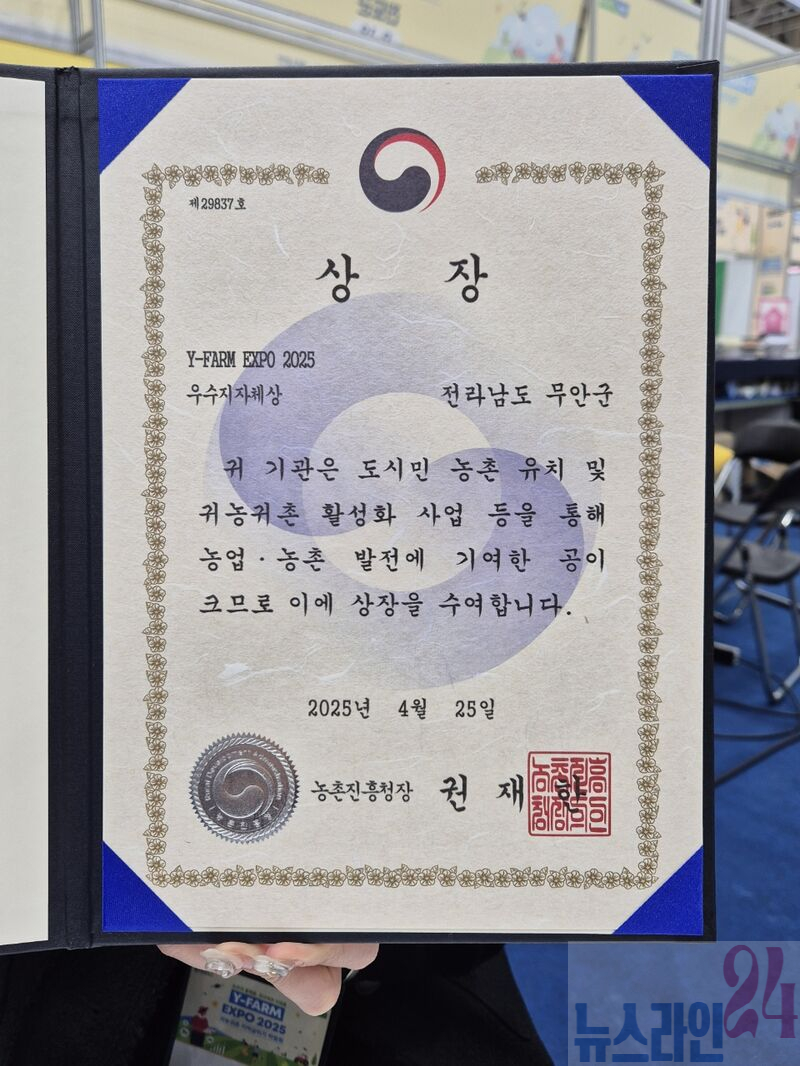 제29837호
상 장
Y-FARM EXPO 2025
우수지자체상
전라남도 무안군
귀 기관은 도시민 농촌 유치 및
귀농귀촌 활성화 사업 등을 통해
농업·농촌 발전에 기여한 공이
크므로 이에 상장을 수여합니다.
2025년 4월 25일
농촌진흥청장 권 재 한
Y-FARM
EXPO 2025
뉴스라인24